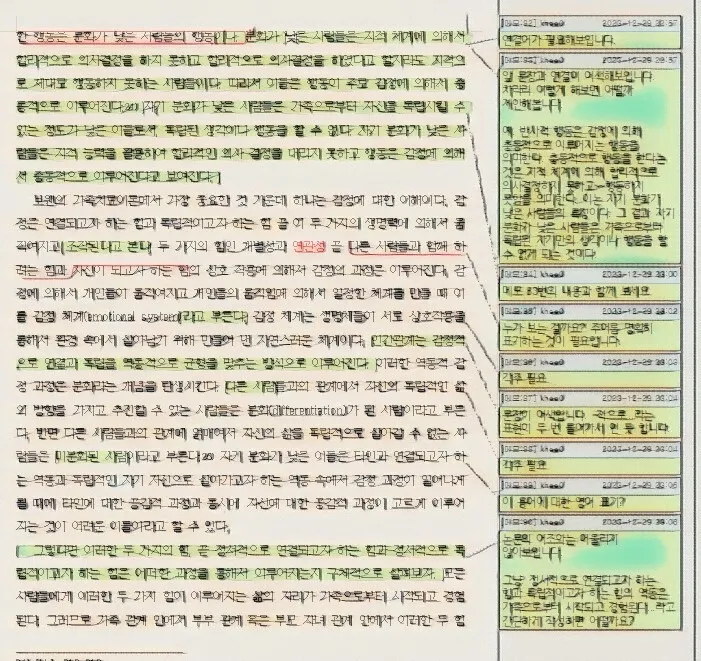 한 행동은 분화가 낮은 사람들의 행동이다. 분화가 낮은 사람들은 지적 체계에 의해서
합리적으로 의사결정을 하지 못하고 합리적으로 의사결정을 하였다고 할지라도 지적으
로 제대로 행동하지 못하는 사람들이다. 따라서 이들은 행동이 주로 감정에 의해서 충
동적으로 이루어진다. 자기 분화가 낮은 사람들은 가족으로부터 자신을 독립시킬 수
없는 정도가 낮은 이들로서 독립된 생각이나 행동을 할 수 없다. 자기 분화가 낮은 사
람들은 지적 능력을 활용하여 합리적인 의사 결정을 내리지 못하고 행동은 감정에 의해
서 충동적으로 이루어진다고 보여진다.
보웬의 가족치료이론에서 가장 중요한 것 가운데 하나는 감정에 대한 이해이다. 감
정은 연결되고자 하는 힘과 독립적이고자 하는 힘 곧 이 두 가지의 생명력에 의해서 움
직여지고 조직된다고 본다. 두 가지의 힘인 개별성과 연합성 곧 다른 사람들과 함께 하
려는 힘과 자신이 되고자 하는 힘의 상호 작용에 의해서 감정의 과정은 이루어진다. 감
정에 의해서 개인들이 움직여지고 개인들의 움직임에 의해서 일정한 체계를 만들 때 이
를 감정 체계(emotional system)라고 부른다. 감정 체계는 생명체들이 서로 상호작용을
통해서 환경 속에서 살아남기 위해 만들어 낸 자연스러운 체계이다. 인간관계는 감정적
으로 연결과 독립을 역동적으로 균형을 맞추는 방식으로 이루어진다. 이러한 역동적 감
정 과정은 분화라는 개념을 탄생시킨다. 다른 사람들과의 관계에서 자신의 독립적인 삶
의 방향을 가지고 추진할 수 있는 사람들은 분화(differentiation)가 된 사람이라고 부른
다. 반면 다른 사람들과의 관계에 얽매여서 자신의 삶을 독립적으로 살아갈 수 없는 사
람들은 미분화된 사람이라고 부른다. 자기 분화가 낮은 이들은 타인과 연결되고자 하
는 역동과 독립적인 자기 자신으로 살아가고자 하는 역동 속에서 감정 과정이 일어나게
될 때에 타인에 대한 공감적 과정과 동시에 자신에 대한 공감적 과정이 고르게 이루어
지는 것이 어려운 이들이라고 할 수 있다.
그렇다면 이러한 두 가지의 힘, 곧 정서적으로 연결되고자 하는 힘과 정서적으로 독
립적이고자 하는 힘은 어떠한 과정을 통해서 이루어지는지 구체적으로 살펴보자. 모든
사람들에게 이러한 두 가지 힘이 이루어지는 삶의 자리가 가족으로부터 시작되고 경험
된다. 그러므로 가족 관계 안에서 부부 관계 혹은 부모 자녀 관계 안에서 이러한 두 힘
연결어가 필요해보입니다.
앞 문장과 연결이 어색해보입니다
차라리 이렇게 해보면 어떨까
제안해봅니다
예. 반사적 행동은 감정에 의해
충동적으로 이루어지는 행동을
의미한다. 충동적으로 행동을 한다는
것은 지적 체계에 의해 합리적으로
의사결정하지 못하고 행동하지
못함을 의미한다. 이는 자기 분화가
낮은 사람들의 특징이다. 그 결과 자기
분화가 낮은 사람은 가족으로부터
독립된 자기만의 생각이나 행동을 할
수 없게 되는 것이다
메모 83번의 내용과 함께 보세요
누가 보는 걸까요? 주어를 명확히
표기하는 것이 필요합니다.
각주 필요
문장이 어색합니다. -적으로 라는
표현이 두 번 들어가서 인 듯 합니다
각주 필요
이 용어에 대한 영어 표기?
논문의 어조와는 어울리지
않아보입니다
그냥 정서적으로 연결되고자 하는
힘과 독립적이고자 하는 힘의 역동은
가족으로부터 시작되고 경험된다. 라고
간단하게 작성하면 어떨까요?